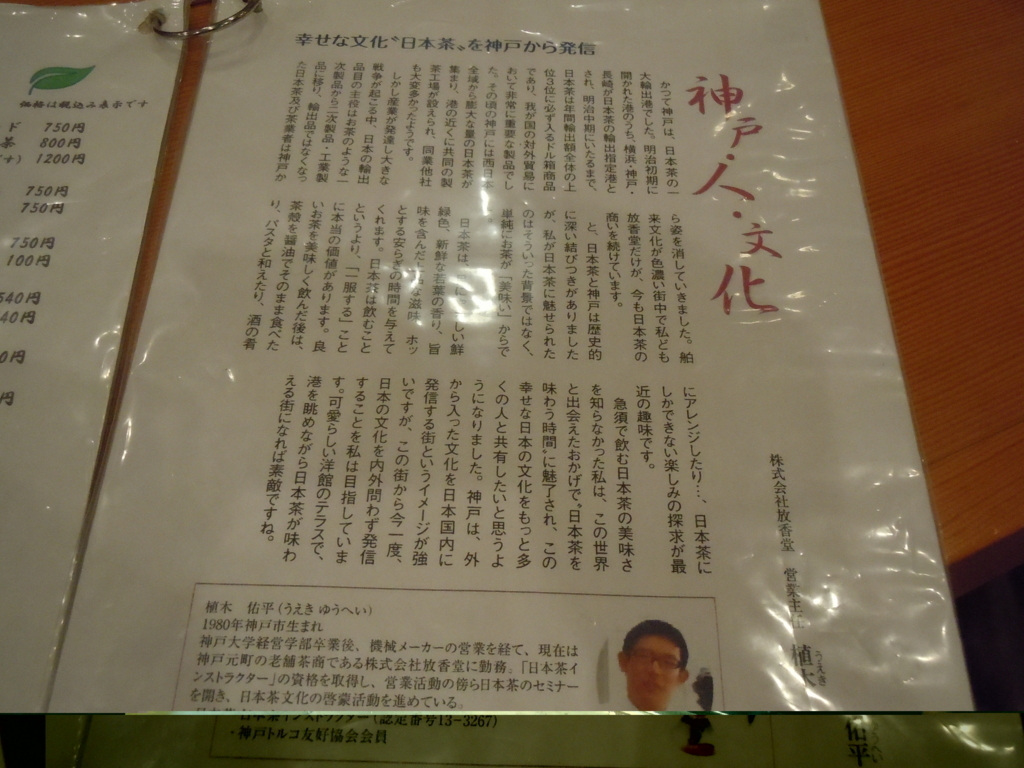 幸せな文化〝日本茶〟を神戸から発信
神戸・人・文化
株式会社放香堂 営業主任 植木
うえき
佑平
かつて神戸は、日本茶の一
大輸出港でした。明治初期に
開かれた港のうち、横浜・神戸・
長崎が日本茶の輸出指定港と
され、明治中期にいたるまで、
日本茶は年間輸出額全体の上
位3位に必ず入るドル箱商品
であり、我が国の対外貿易に
おいて非常に重要な製品でし
た。その頃の神戸には西日本
全域から膨大な量の日本茶が
集まり、港の近くに共同の製
茶工場が設けられ、同業他社
も大変多かったようです。
しかし産業が発達し大きな
戦争が起こる中、日本の輸出
品目の主役はお茶のような一
次製品から二次製品・工業製
品に移り、輸出品ではなくなっ
た日本茶及び茶業者は神戸か
ら姿を消していきました。舶
来文化が色濃い街中で私ども
放香堂だけが、今も日本茶の
商いを続けています。
と、日本茶と神戸は歴史的
に深い結びつきがありました
が、私が日本茶に魅せられた
のはそういった背景ではなく、
単純にお茶が「美味い」からで
す。
日本茶は、しい鮮
緑色、新鮮な若葉の香り、旨
味を含んだ滋味、ホッ
とする安らぎの時間を与えて
くれます。日本茶は飲むこと
というより、「一服する」こと
に本当の価値があります。良
いお茶を美味しく飲んだ後は、
茶殻を醤油でそのまま食べた
り、パスタと和えたり、酒の肴
にアレンジしたり…、日本茶に
しかできない楽しみの探求が最
近の趣味です。
急須で飲む日本茶の美味さ
を知らなかった私は、この世界
と出会えたおかげで〝日本茶を
味わう時間〟に魅了され、この
幸せな日本の文化をもっと多
くの人と共有したいと思うよ
うになりました。神戸は、外
から入った文化を日本国内に
発信する街というイメージが強
いですが、この街から今一度、
日本の文化を内外問わず発信
することを私は目指していま
す。可愛らしい洋館のテラスで、
港を眺めながら日本茶が味わ
える街になれば素敵ですね。
植木 佑平(うえき ゆうへい)
1980年神戸市生まれ
神戸大学経営学部卒業後、機械メーカーの営業を経て、現在は
神戸元町の老舗茶商である株式会社放香堂に勤務。「日本茶イ
ンストラクター」の資格を取得し、営業活動の傍ら日本茶のセミナー
を開き、日本茶文化の啓蒙活動を進めている。
・日本茶インストラクター(認定番号13-3267)
・神戸トルコ友好協会会員
価格は税込み表示です
ド 750円
茶 800円
1200円
750円
750円
750円
100円
540円
40円
0円
円